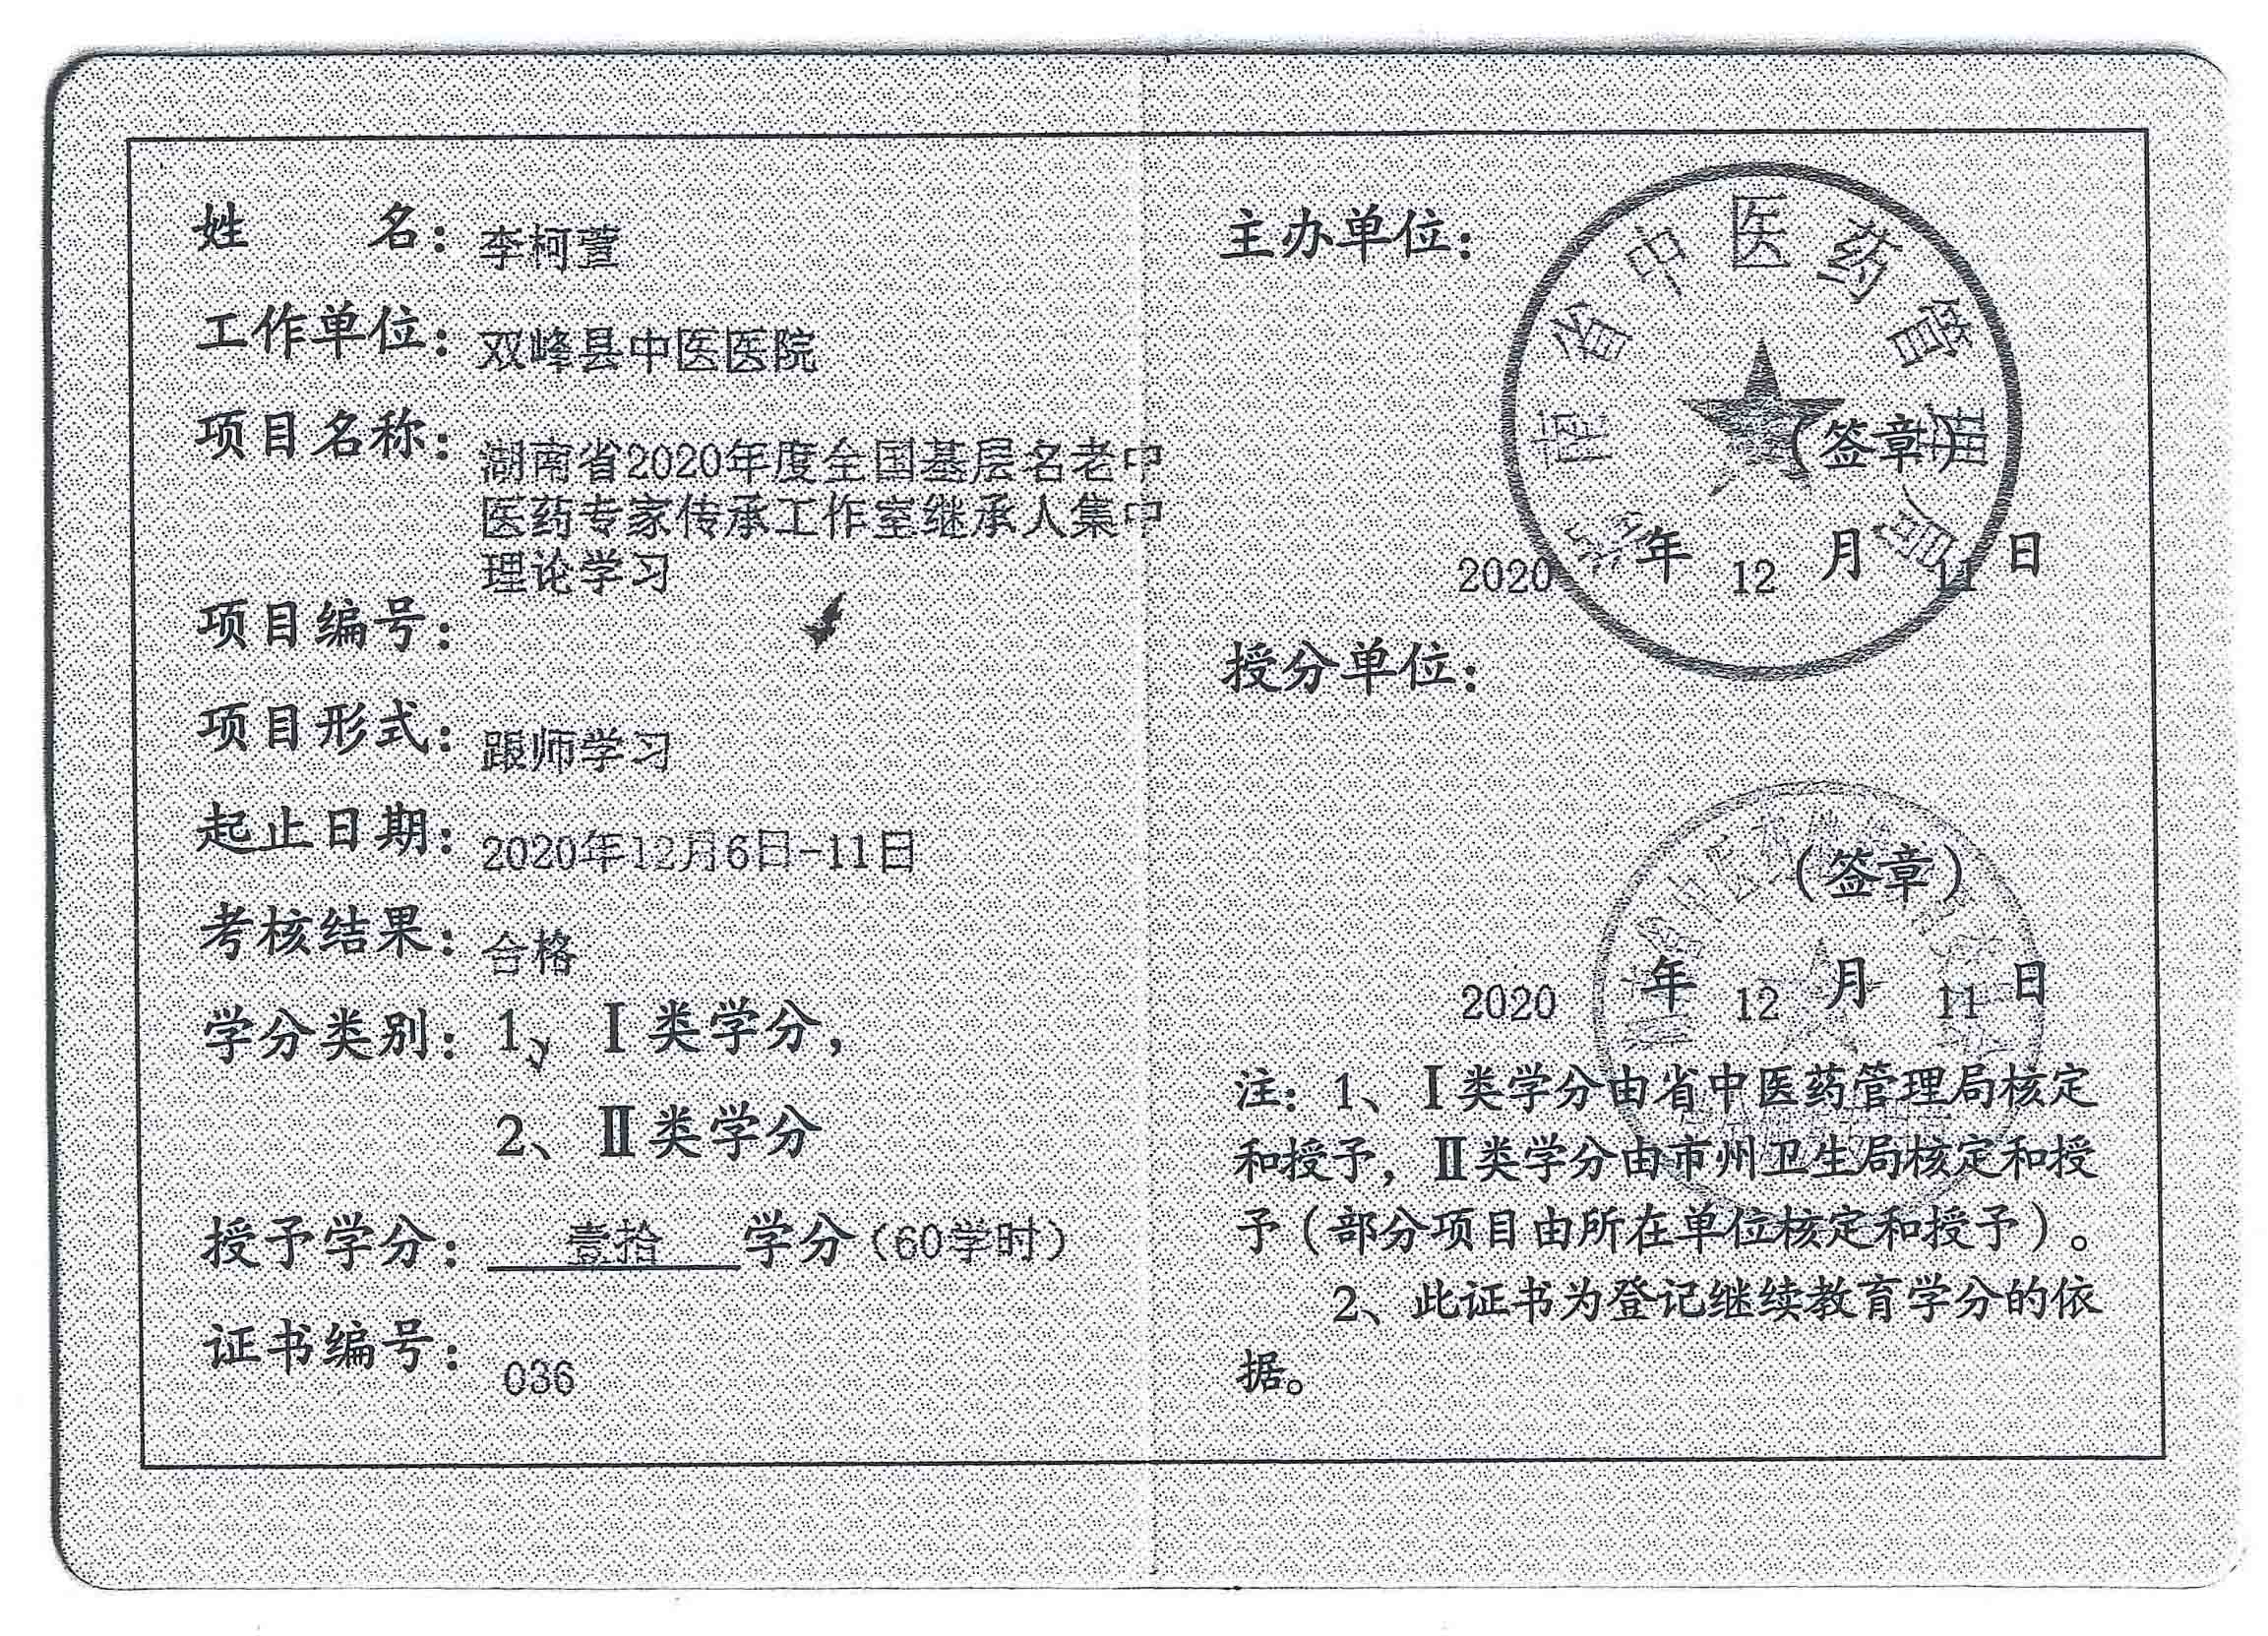 姓 名：李柯萱
工作单位：双峰县中医医院
项目名称：湖南省2020年度全国基层名老中
医药专家传承工作室继承人集中
理论学习
项目编号：
项目形式：跟师学习
起止日期：2020年12月6日-11日
考核结果：合格
学分类别：1、Ⅰ类学分，
2、Ⅱ类学分
授予学分：壹拾学分（60学时）
证书编号：036
主办单位：
湖南省中医药管理局
（签章）
2020年12月11日
授分单位：
（签章）
2020年12月11日
注：1、Ⅰ类学分由省中医药管理局核定
和授予，Ⅱ类学分由市州卫生局核定和授
予（部分项目由所在单位核定和授予）。
2、此证书为登记继续教育学分的依
据。